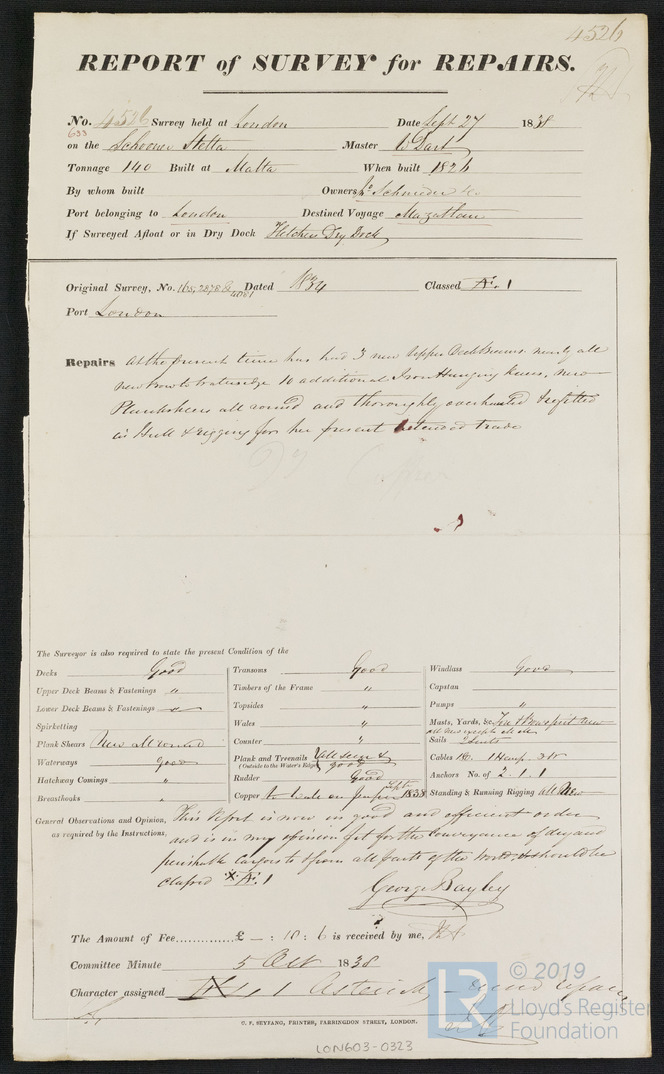 4526
REPORT of SURVEY for REPAIRS.
No. 4526 Survey held at London Date Sept 27 1838
633
on the Schooner Stella Master W Dart
Tonnage 140 Built at Malta When built 1826
By whom built Owners Schneider &c
Port belonging to London Destined Voyage Mazatlan
If Surveyed Afloat or in Dry Dock Fletchers Dry Dock
Original Survey, No. 165, 2878 & 4081 Dated 1834 Classed Æ. 1
Port London
Repairs At the present time has had 3 new upper Deck Beams nearly all
new 10 additional Iron Hanging knees, new
Plankshears all round and thoroughly overhauled & refitted
in Hull & rigging for her present intended trade
The Surveyor is also required to state the present Condition of the
Decks Good
Upper Deck Beams & Fastenings "
Lower Deck Beams & Fastenings "
Spirketting
Plank Shears New all round
Waterways good
Hatchway Comings "
Breasthooks "
Transoms Good
Timbers of the Frame "
Topsides "
Wales "
Counter "
Plank and Treenails all seen &
(Outside to the Water's Edge) good
Rudder Good
Copper to Wales on Sept. 1838
Windlass Good
Capstan
Pumps "
Masts, Yards, &c Fore & Bowsprit new
all new except
Sails 2 Suits
Cables &c. 1 Hemp
Anchors No. of 2. 1. 1
Standing & Running Rigging all New
General Observations and Opinion, This Vessel is now in good and efficient order
as required by the Instructions. and is in my opinion fit for the conveyance of dry and
perishable cargoes to & from all parts of the World & should be
classed * Æ. 1
George Bayley
The Amount of Fee .............. £ — : 10 : 6 is received by me,
Committee Minute 5 Oct 1838
Character assigned 1 Asterisk
C. F. SEYFANG, PRINTER, FARRINGDON STREET, LONDON.
LON603-0323
LR © 2019
Lloyd's Register
Foundation